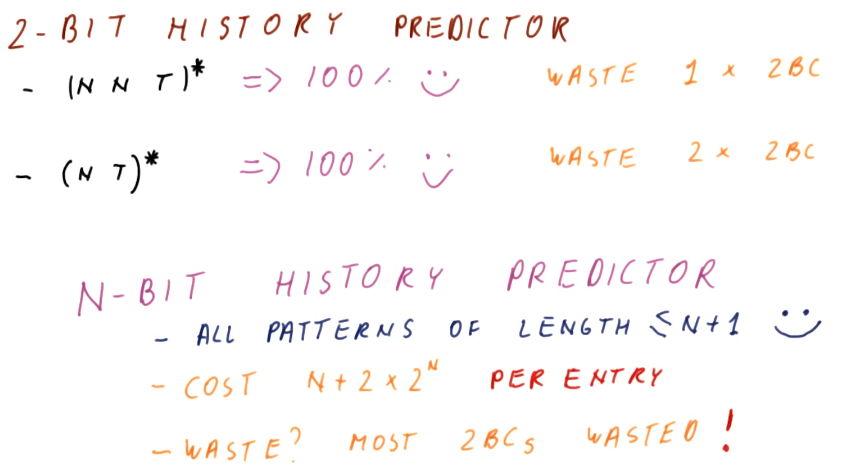 2-BIT HISTORY PREDICTOR
- (N N T)* => 100% WASTE 1 x 2BC
- (N T)* => 100% WASTE 2 x 2BC
N-BIT HISTORY PREDICTOR
- ALL PATTERNS OF LENGTH ≤ N+1
- COST N + 2 x 2^N PER ENTRY
- WASTE? MOST 2BCs WASTED !